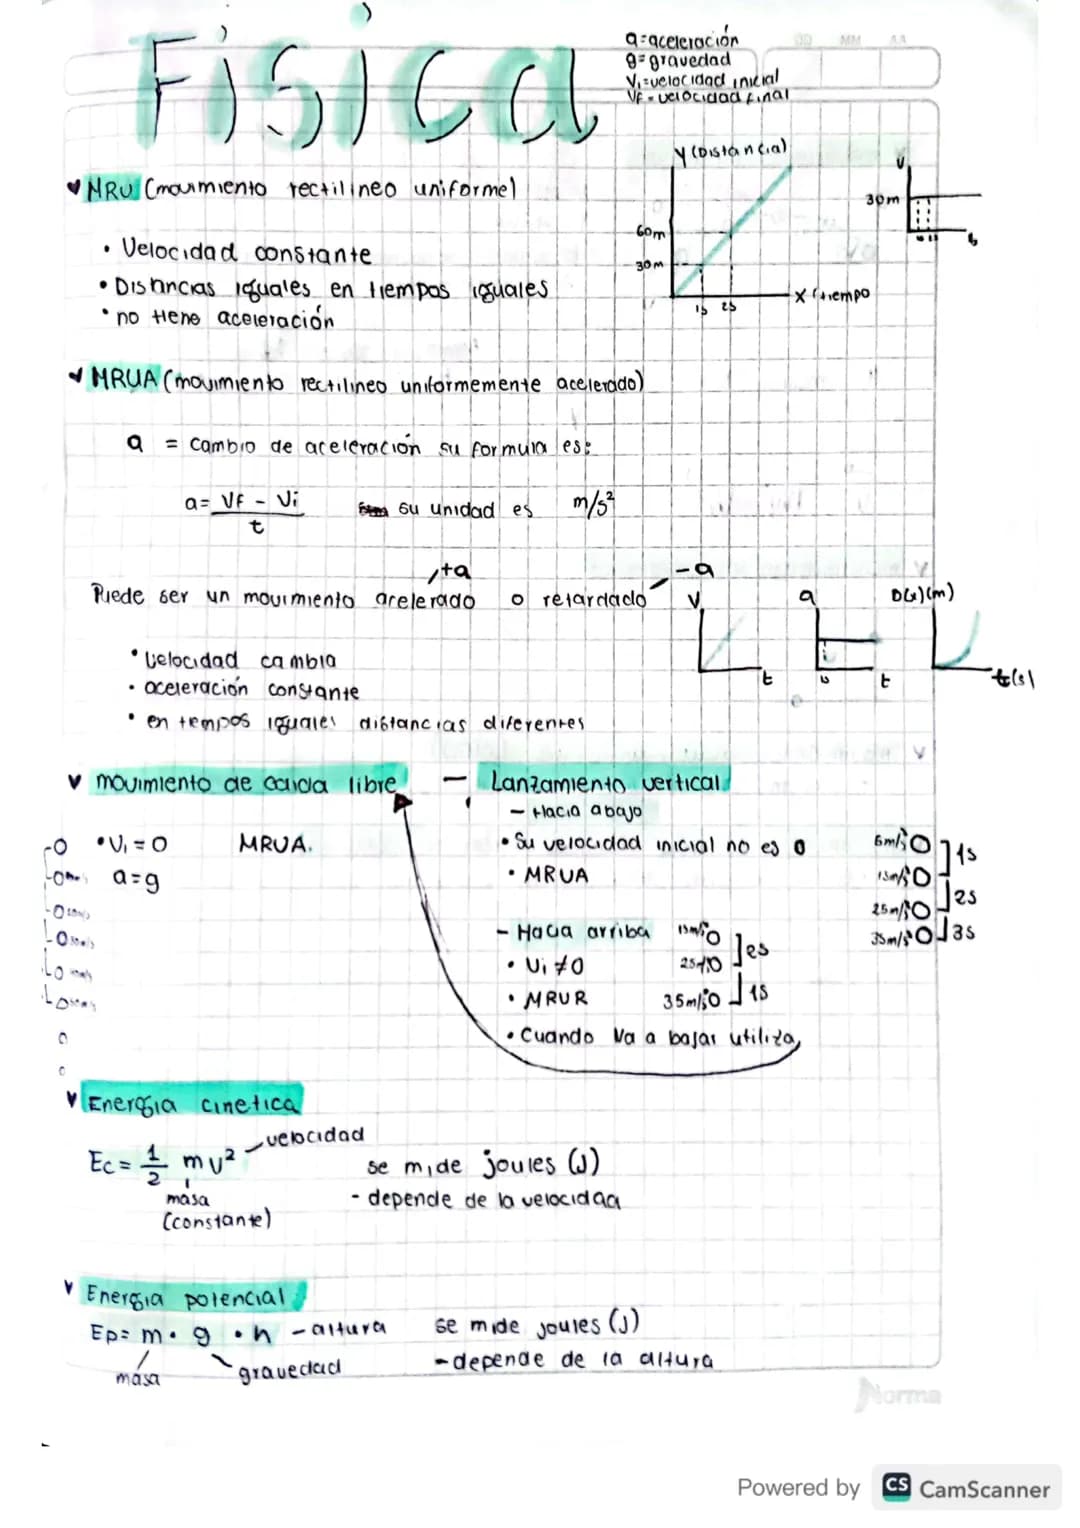 Física
a=aceleración
g=gravedad
Vi=velocidad inicial
VF=velocidad final
DD MM AA
MRU (movimiento rectilineo uniforme)
• Velocidad constante
• Distancias iguales en tiempos iguales
• no tiene aceleración
Y (Distancia)
60m
30m
1s 2s
X (tiempo
V
30m
t
MRUA (movimiento rectilineo uniformemente acelerado)
a = cambio de aceleración su formula es:
a= VF - Vi
t
su unidad es m/s²
+a
-a
Puede ser un movimiento acelerado o retardado
• velocidad cambia
• aceleración constante
• en tiempos iguales distancias diferentes
V
t
a
t
D(x)(m)
t(s)
movimiento de caida libre
• Vi = 0 MRUA.
a=g
Lanzamiento vertical
- Hacia abajo
• Su velocidad inicial no es 0
• MRUA
15m/s
25m/s
35m/s
1s
2s
3s
- Hacia arriba
• Vi ≠ 0
• MRUR
• Cuando va a bajar utiliza
35m/s
1s
Energia cinetica
Ec= 1/2 mv² velocidad
masa
(constante)
se mide joules (J)
- depende de la velocidad
Energia potencial
Ep= m • g • h - altura
masa
gravedad
se mide joules (J)
- depende de la altura
Norma
Powered by CS CamScanner